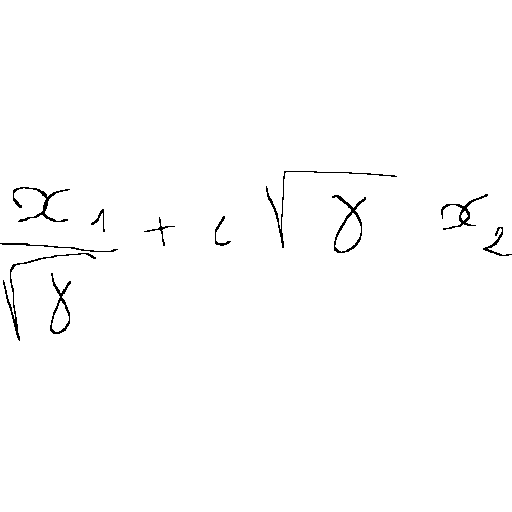 \frac{x_1}{\sqrt{\gamma}} + i \sqrt{\gamma} x_2